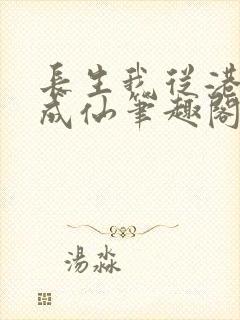 長生我從港
成仙筆趣閣
湯淼